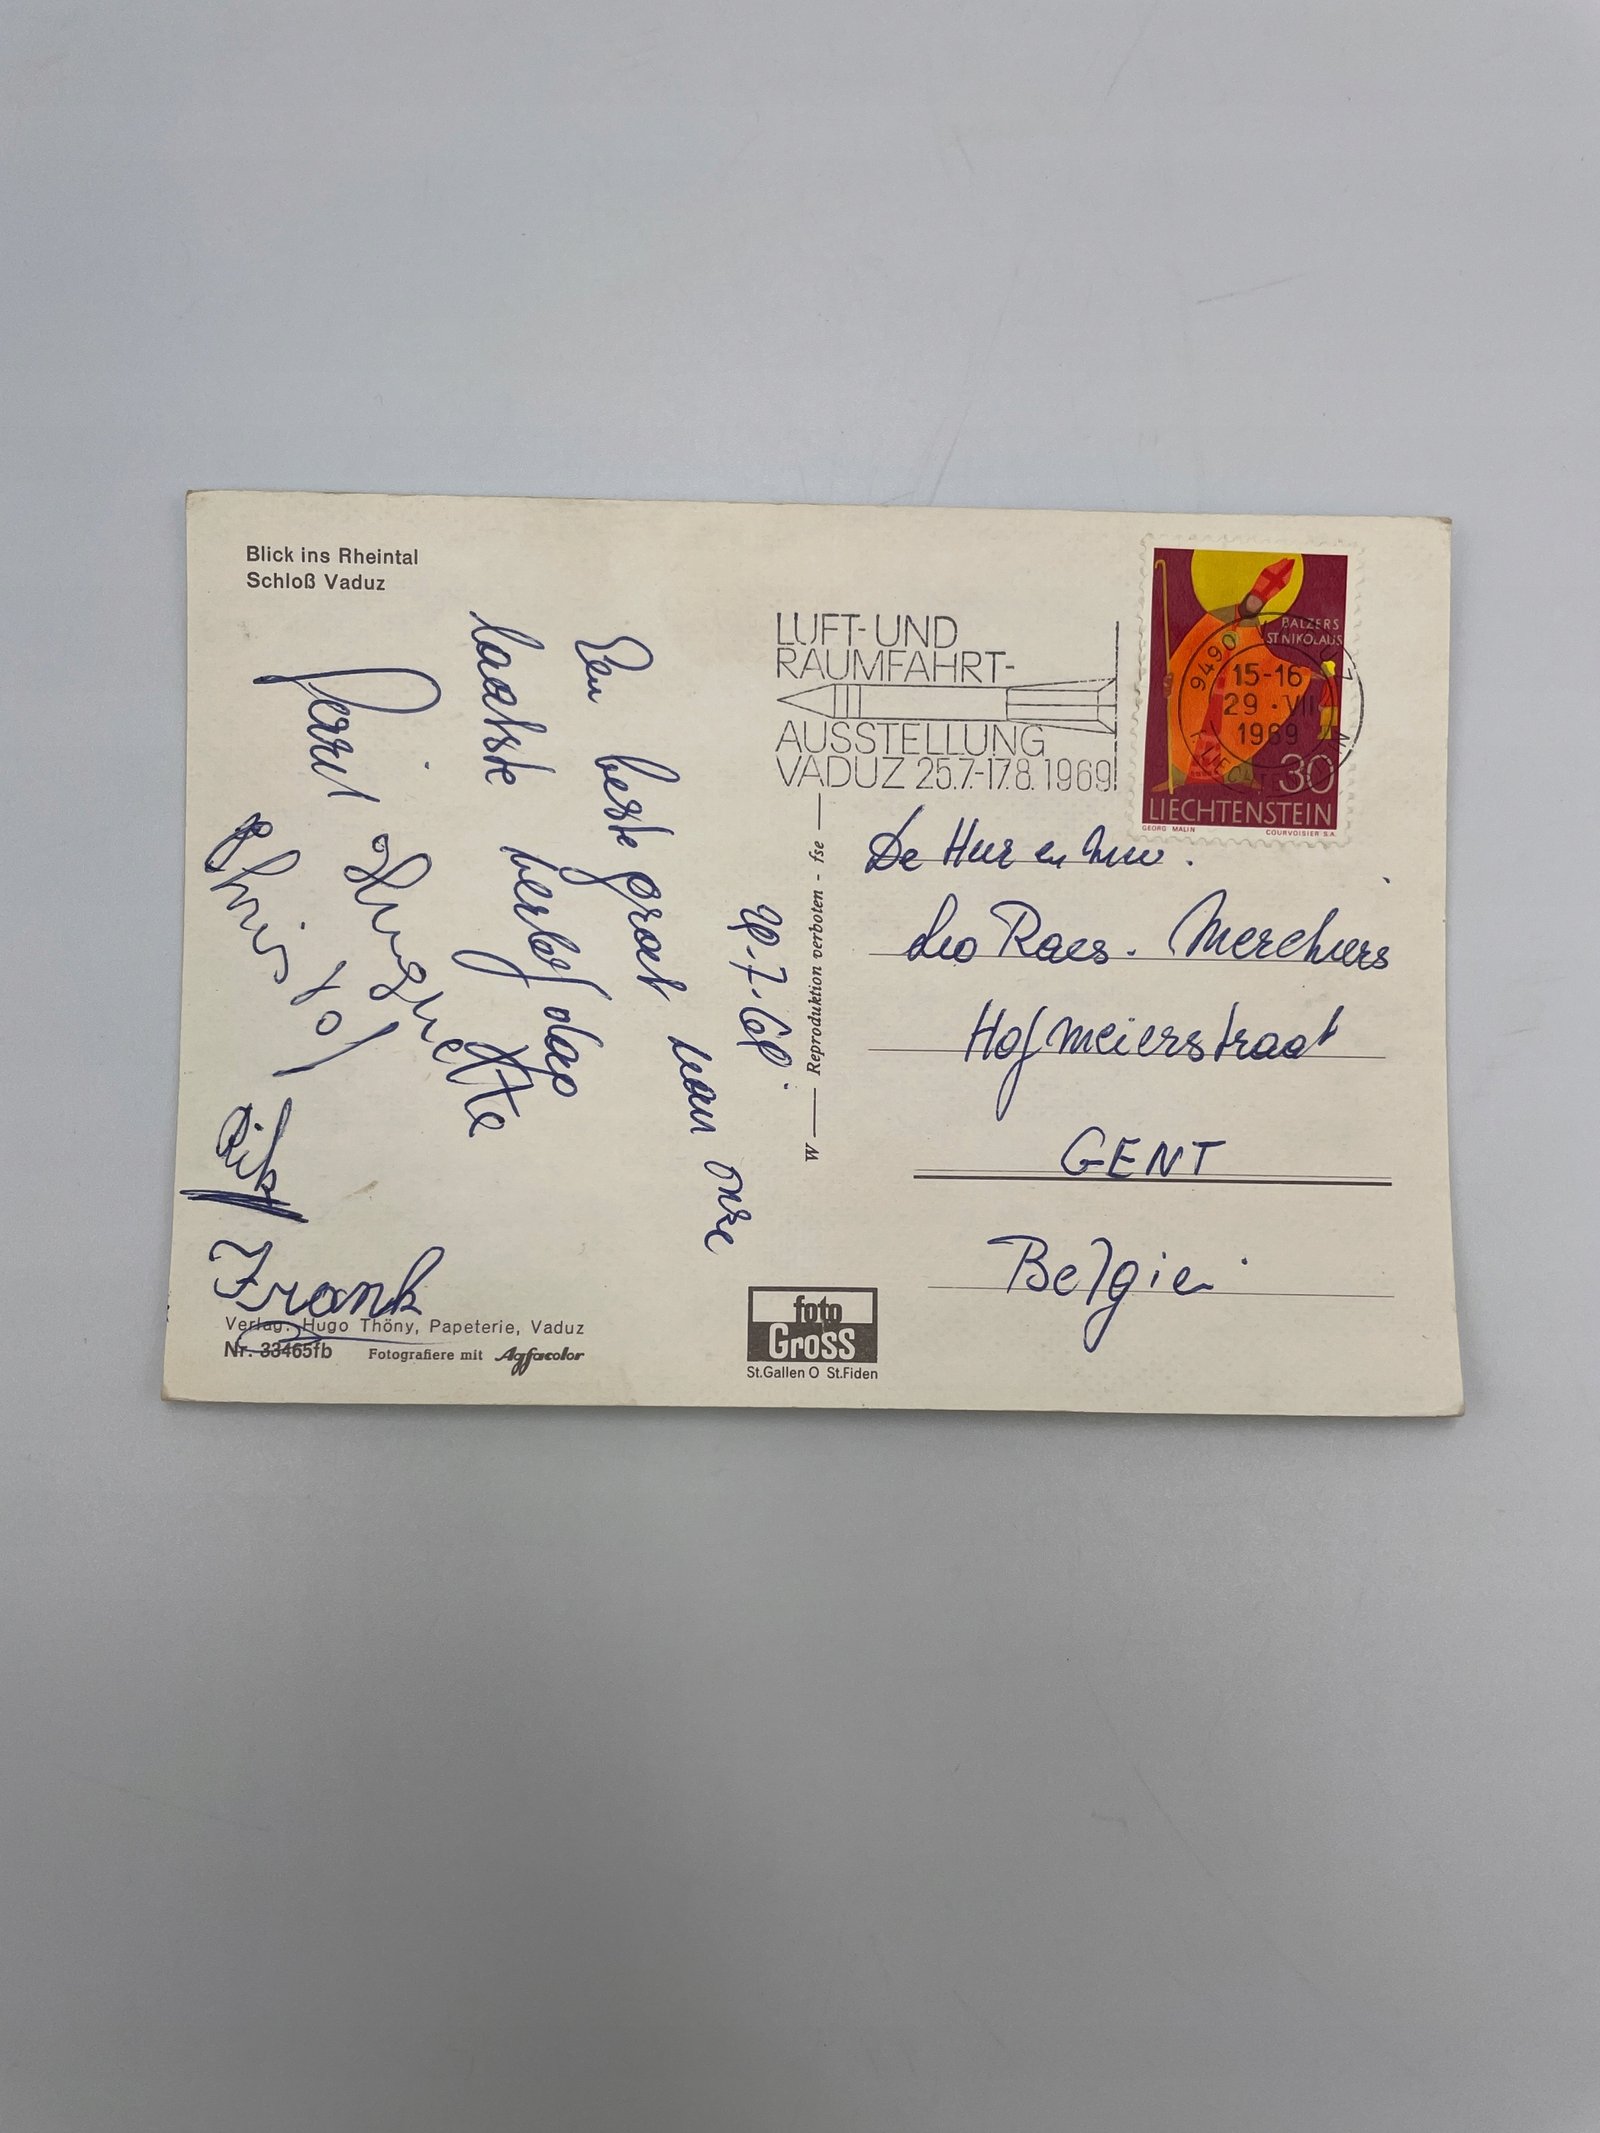 Blick ins Rheintal
Schloß Vaduz
29-7-69.
Een beste groet van onze
laatste verlof dag
Huguette
Christof
Rik
Frank
Verlag: Hugo Thöny, Papeterie, Vaduz
Nr. 33465fb Fotografiere mit Agfacolor
W — Reproduktion verboten - fse —
foto
Gross
St.Gallen O St.Fiden
LUFT- UND
RAUMFAHRT-
AUSSTELLUNG
VADUZ 25.7.-17.8.1969
BALZERS
ST NIKOLAUS
9490
15-16
29.VII
1969
30
LIECHTENSTEIN
GEORG MALIN COURVOISIER S.A.
De Heer en Mevr.
Leo Raes. Merchiers
Hofmeierstraat
GENT
Belgie